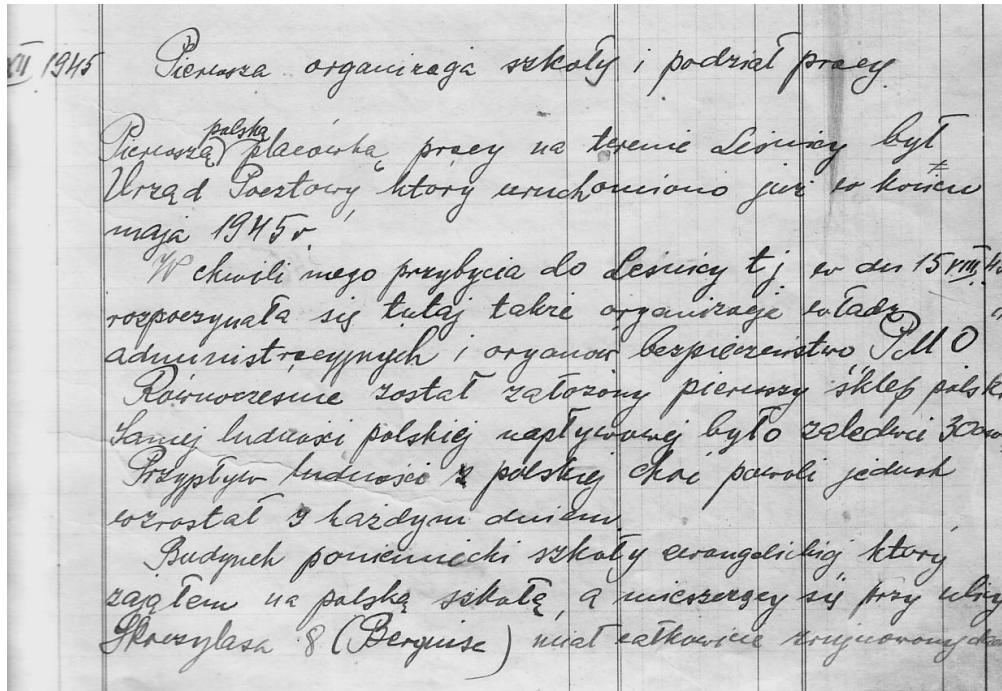 XII 1945 Pierwsza organizacja szkoły i podział pracy.
polską
Pierwszą placówką pracy na terenie Leśnicy był
Urząd Pocztowy, który uruchomiono już w końcu
maja 1945 r.
W chwili mego przybycia do Leśnicy tj w dn 15 VIII.
rozpoczynała się tutaj także organizacje władz
administracyjnych i organów bezpieczeństwo PMO
Równocześnie został założony pierwszy "sklep polski
Samej ludności polskiej napływowej było zaledwie 30
Przypływ ludności z polskiej choć powoli jednak
wzrastał z każdym dniem.
Budynek poniemiecki szkoły ewangelickiej który
zająłem na polską szkołę, a mieszczący się przy ulicy
Skoczylasa 8 ( ) miał całkowicie zrujnowany